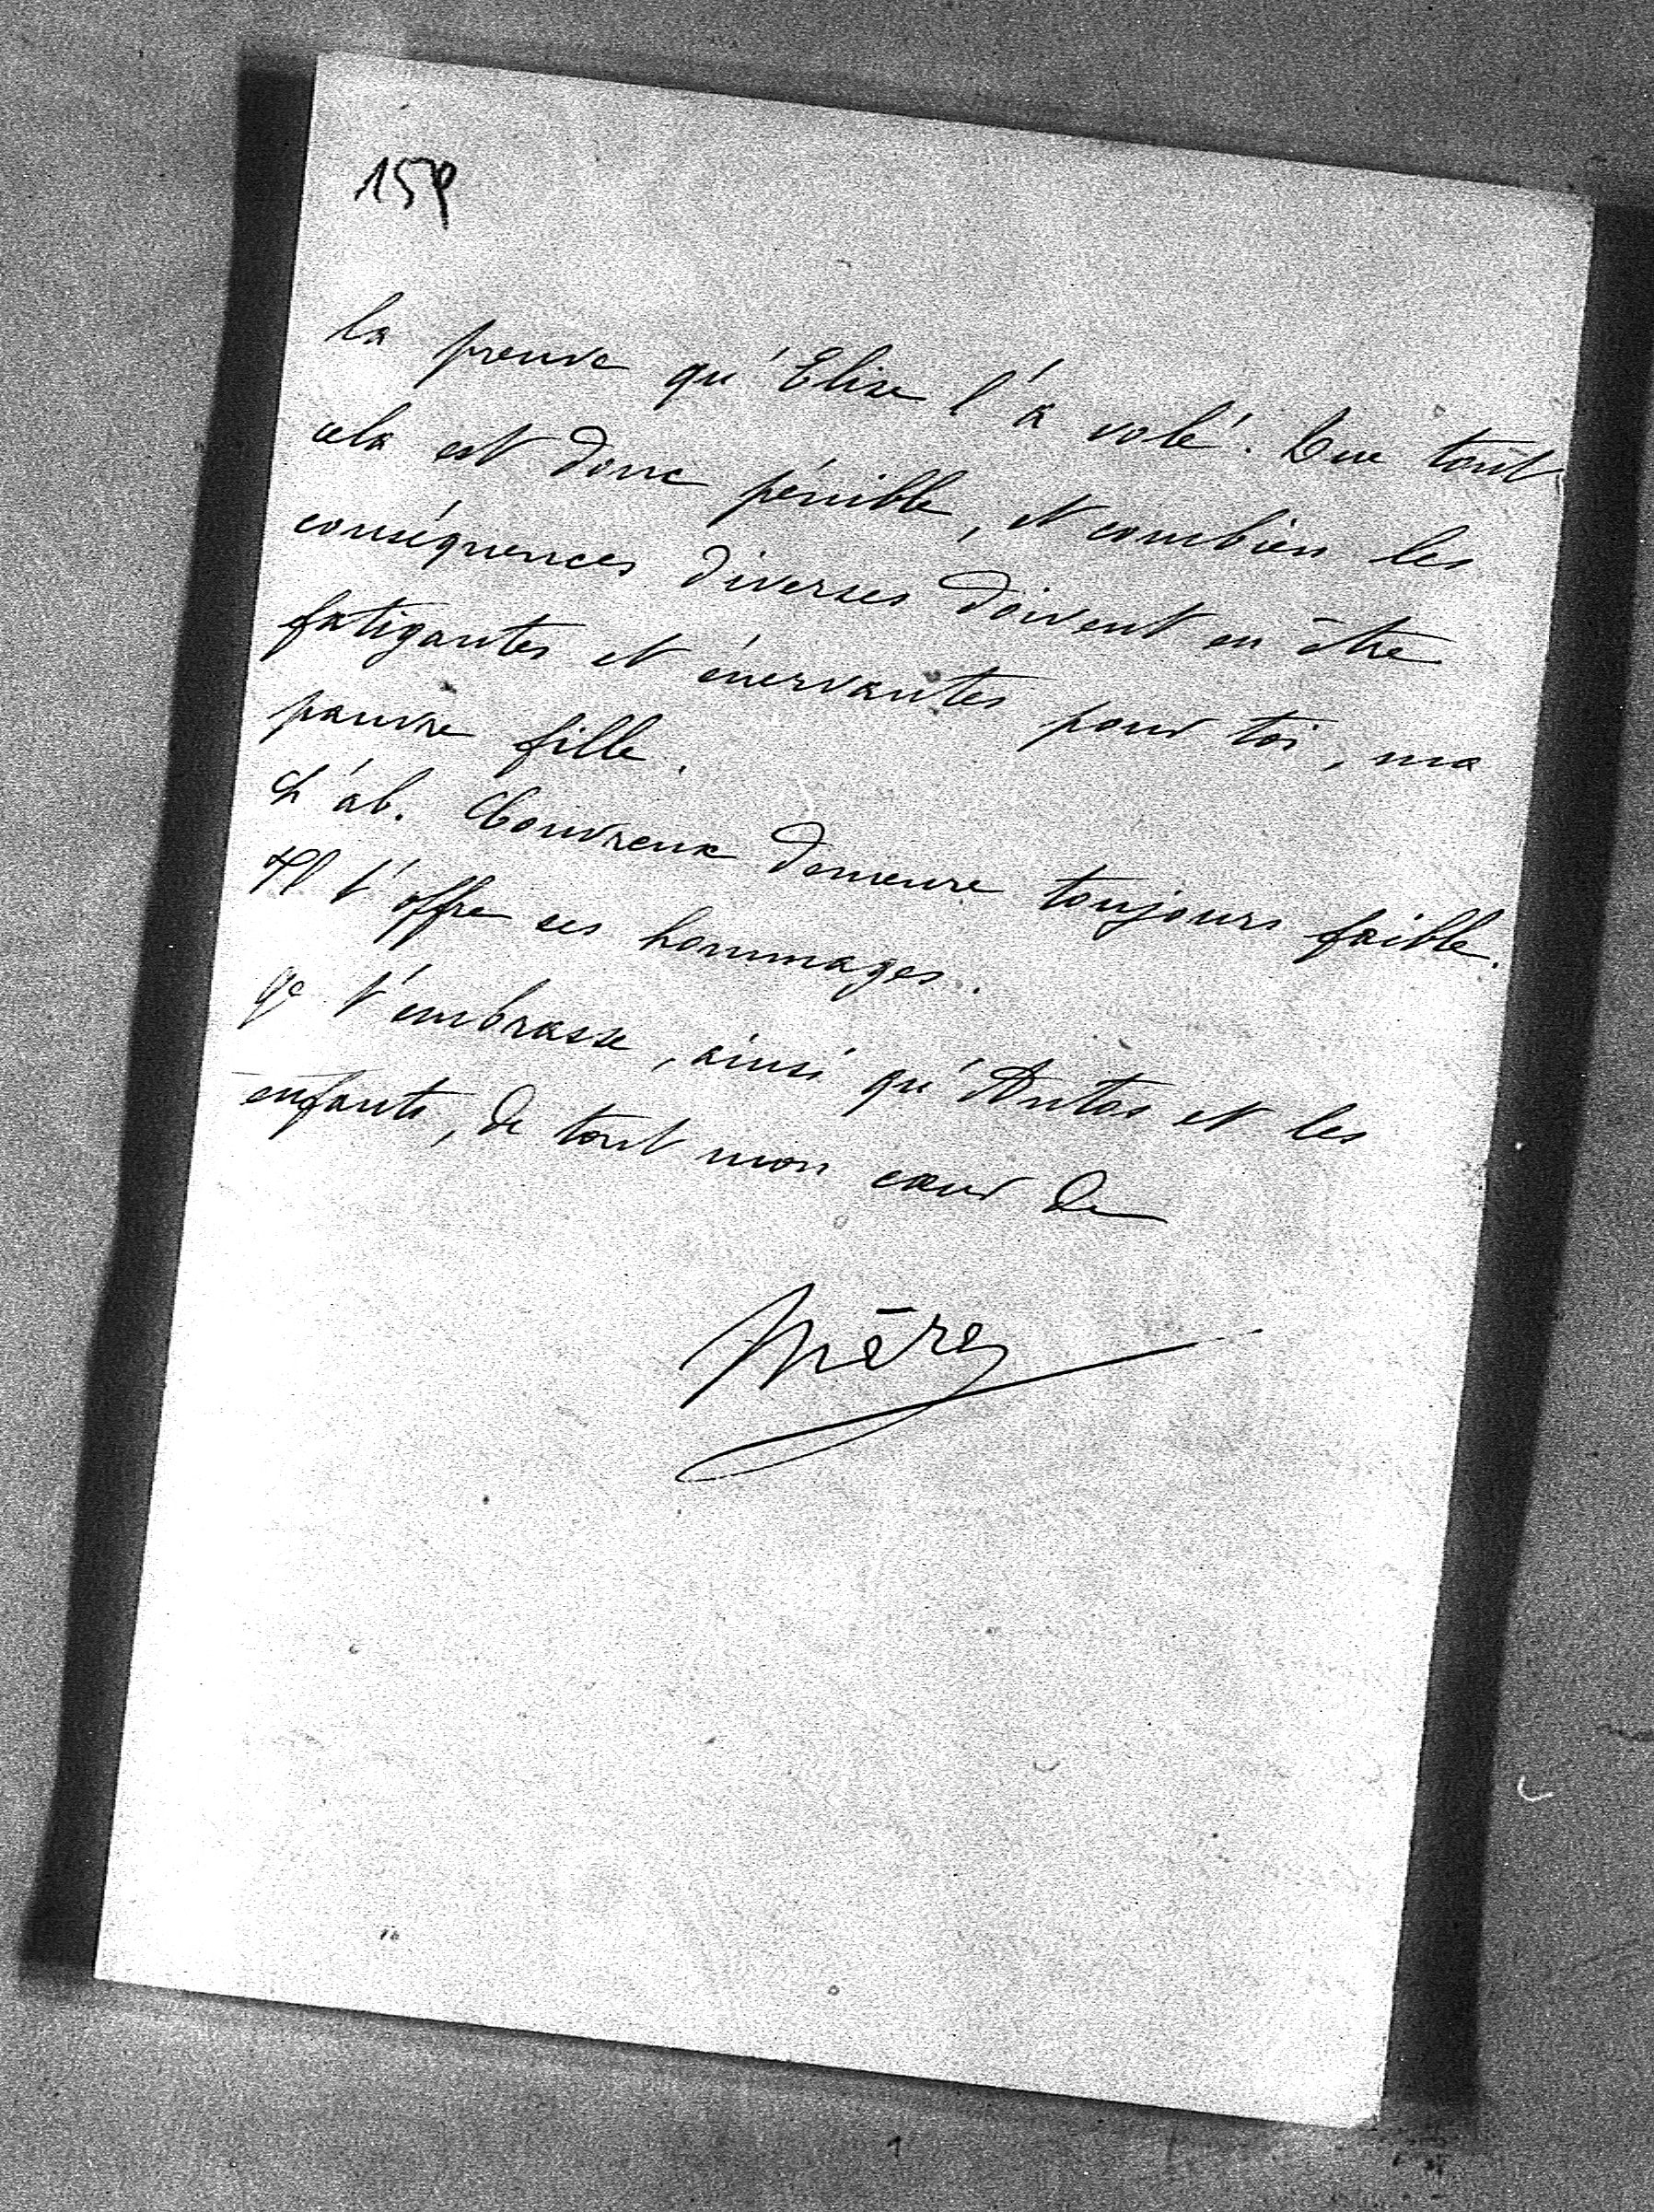 159
la preuve qu'Elise l'a volé. Que tout
cela est donc pénible, et combien les
conséquences diverses doivent en être
fatigantes et énervantes pour toi, ma
pauvre fille.
L'ab. Chouvreux demeure toujours faible.
Il t'offre ses hommages.
Je t'embrasse, ainsi qu'Antos et les
enfants, de tout mon cœur de
Mère